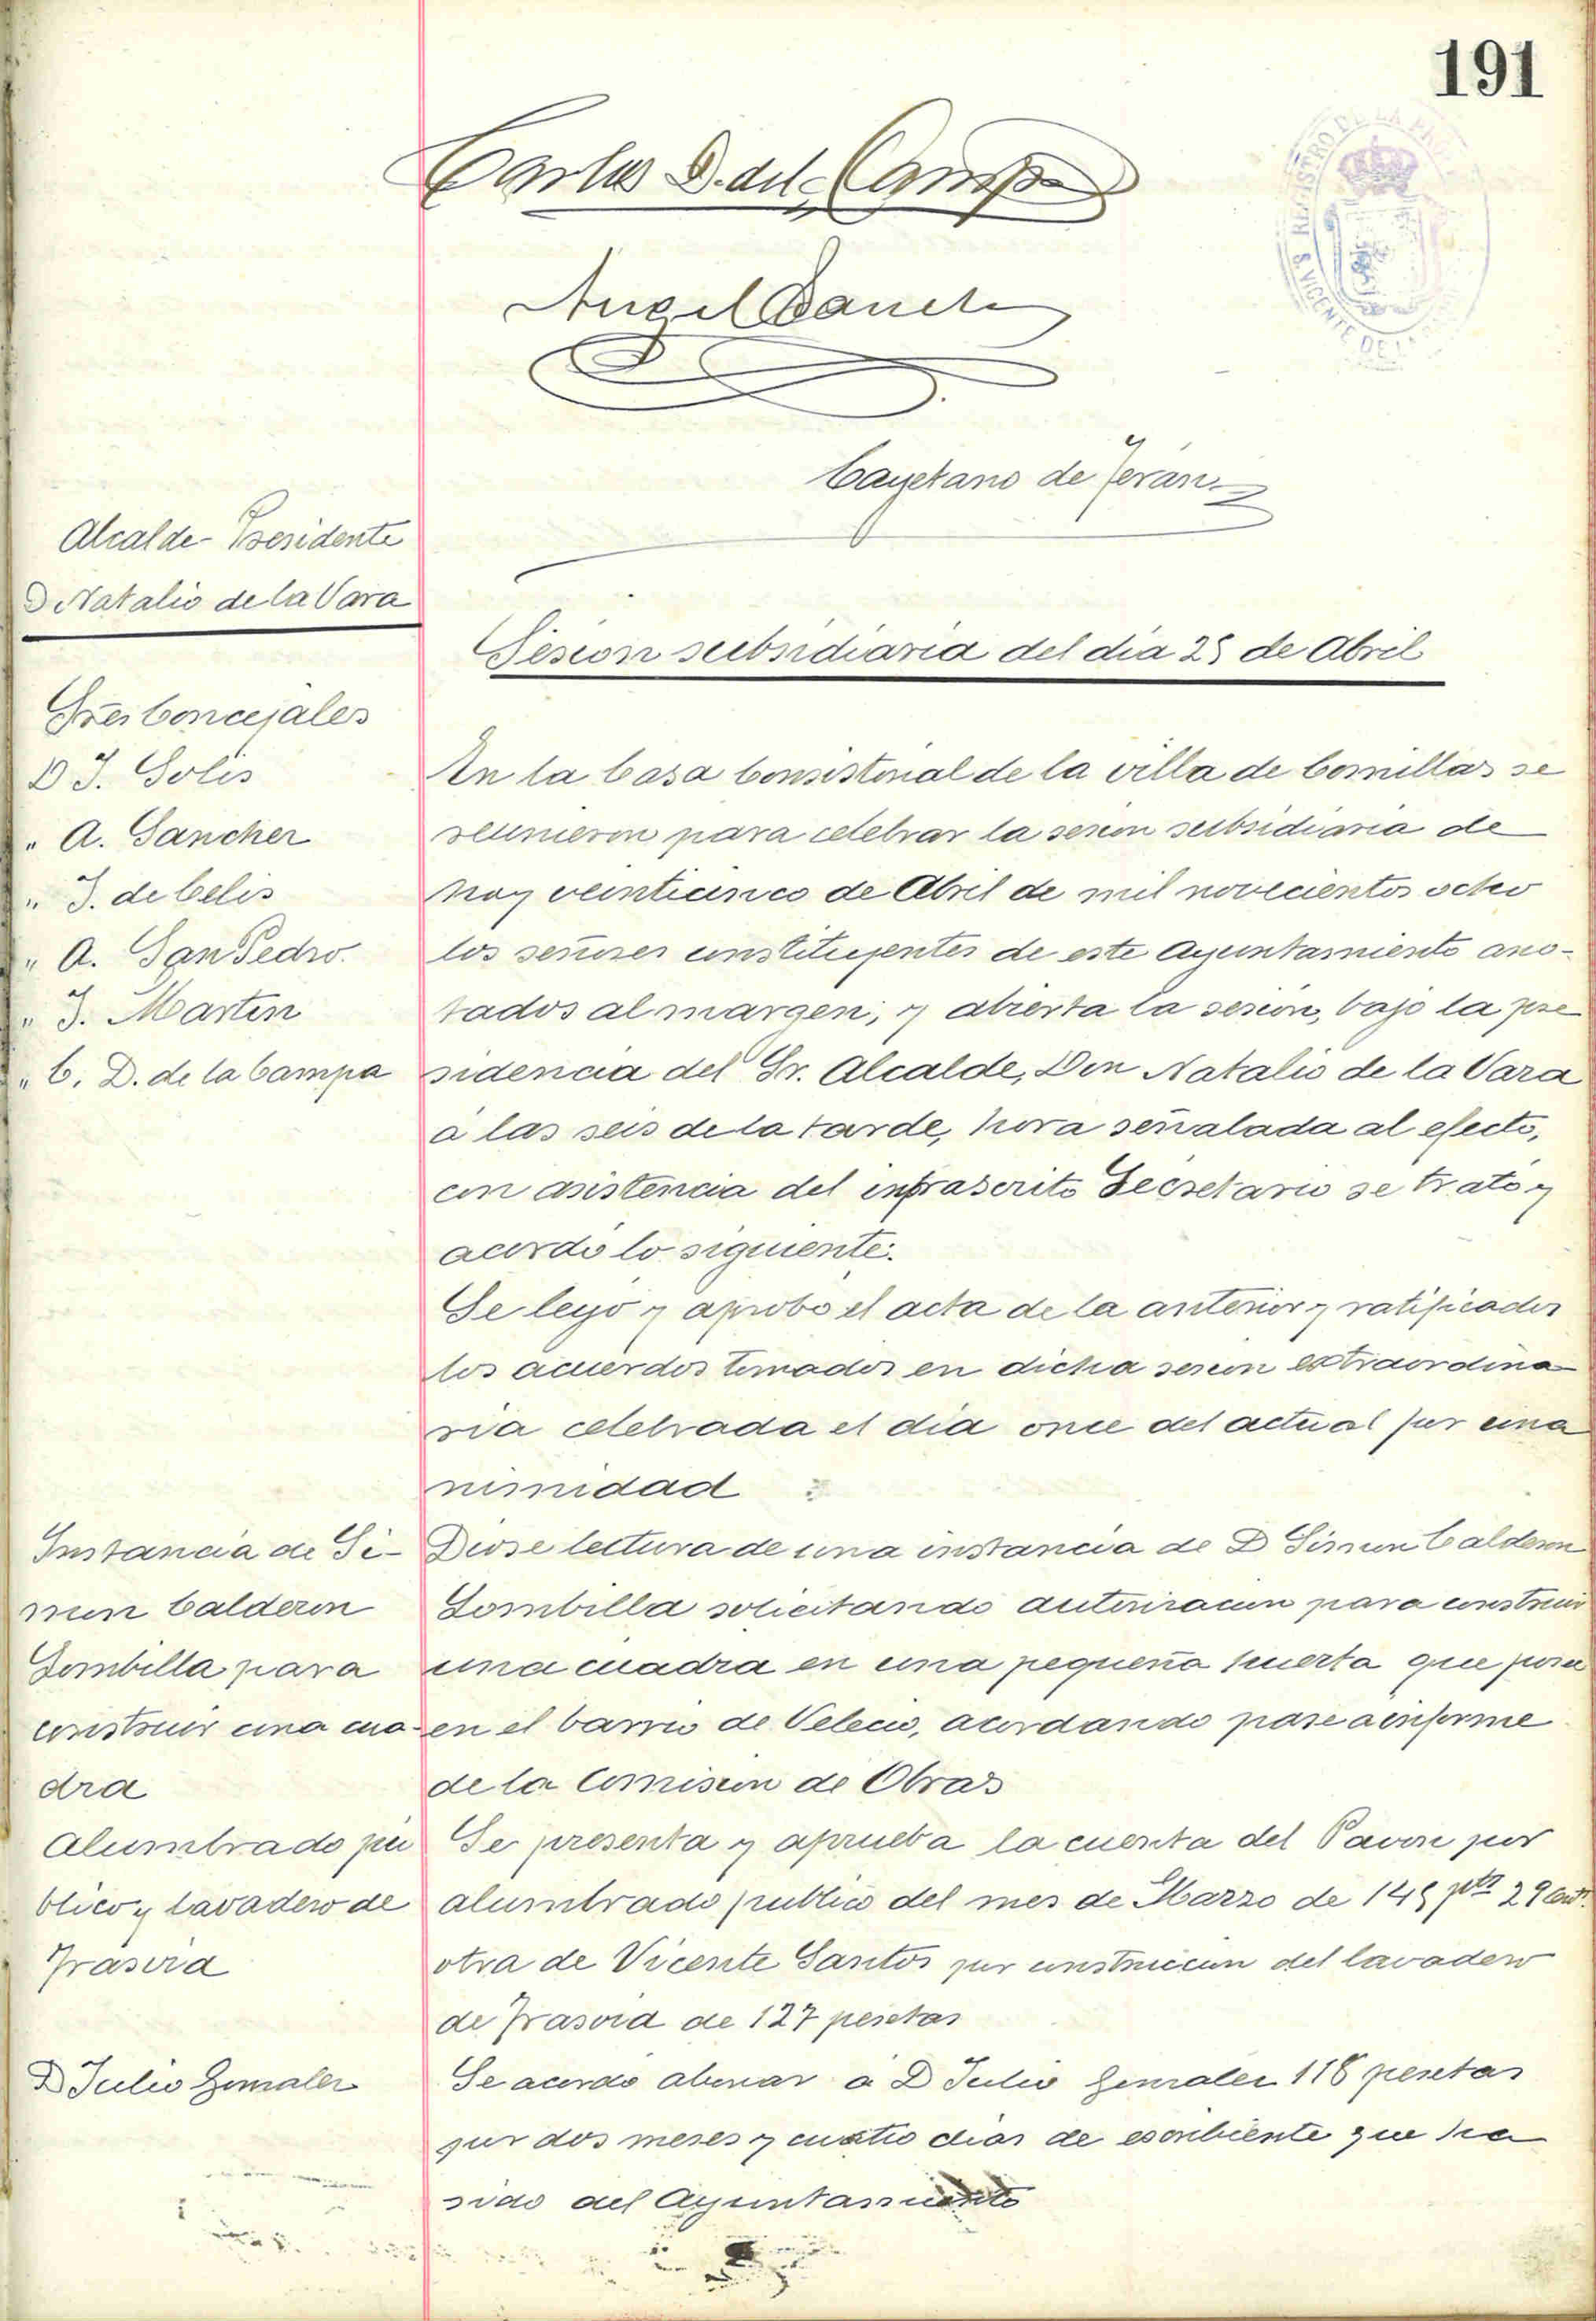 191
Carlos D. de la Campa
Angel Sanchez
Cayetano de Terán
Alcalde-Presidente
D Natalio de la Vara
Sesion subsidiaria del dia 25 de Abril
Sres Concejales
D J. Solis
" A. Sanchez
" J. de Celis
" A. San Pedro.
" J. Martin
" C. D. de la Campa
En la Casa Consistorial de la villa de Comillas se
reunieron para celebrar la sesion subsidiaria de
hoy veinticinco de Abril de mil novecientos ocho
los señores constituyentes de este Ayuntamiento ano-
tados al margen; y abierta la sesion, bajo la pre
sidencia del Sr. Alcalde, Don Natalio de la Vara
á las seis de la tarde, hora señalada al efecto,
con asistencia del infrascrito Secretario se trató y
acordó lo siguiente:
Se leyó y aprobó el acta de la anterior y ratificados
los acuerdos tomados en dicha sesion extraordina
ria celebrada el dia once del actual por una
nimidad
Instancia de Si-
mon Calderon
Gombilla para
construir una cua-
dra
Diose lectura de una instancia de D Simon Calderon
Gombilla solicitando autorizacion para construir
una cuadra en una pequeña huerta que posee
en el barrio de Velecio, acordando pase a informe
de la Comision de Obras
Alumbrado pu
blico y lavadero de
Trasvia
Se presenta y aprueba la cuenta del Pavon por
alumbrado publico del mes de Marzo de 145 pts 29 cent.
otra de Vicente Santos por construccion del lavadero
de Trasvia de 127 pesetas
D Julio Gonzalez
Se acordo abonar á D Julio Gonzalez 116 pesetas
por dos meses y cuatro dias de escribiente que ha
sido del Ayuntamiento